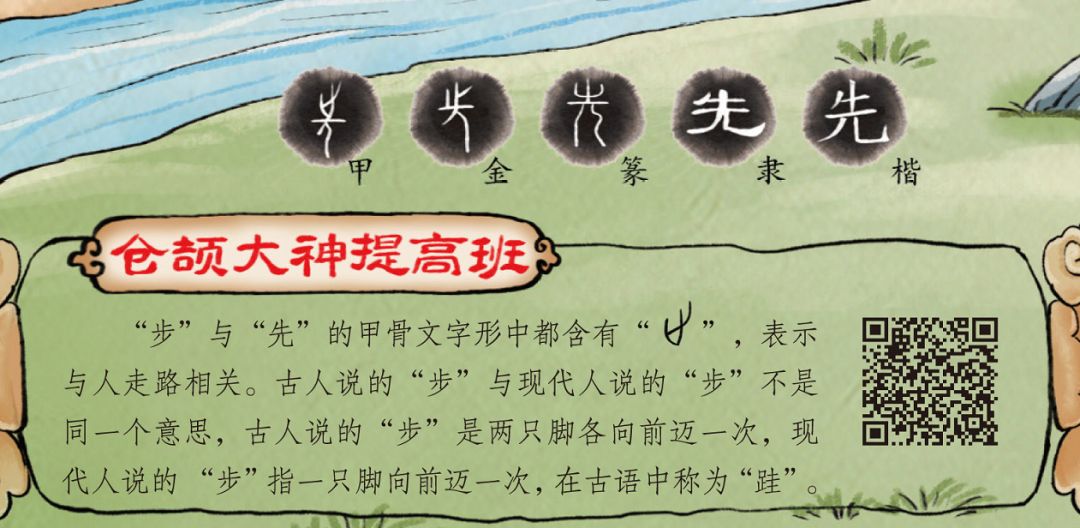 先 先
甲 金 篆 隶 楷
仓颉大神提高班
“步”与“先”的甲骨文字形中都含有“ ”，表示
与人走路相关。古人说的“步”与现代人说的“步”不是
同一个意思，古人说的“步”是两只脚各向前迈一次，现
代人说的“步”指一只脚向前迈一次，在古语中称为“跬”。